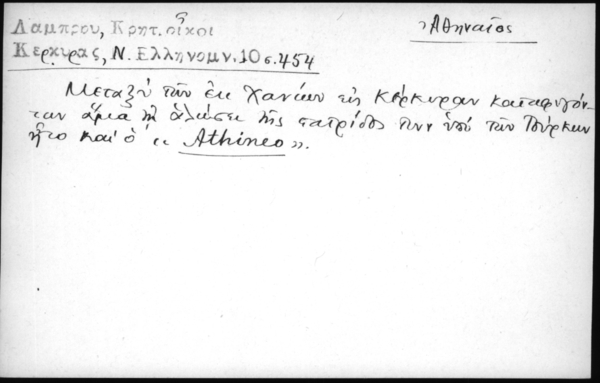 Λαμπρου, Κρητ. οἶκοι
Κερκυρας, Ν. Ελληνομν. 10 σ. 454
Ἀθηναῖος
Μεταξὺ τῶν ἐκ Χανίων εἰς Κέρκυραν καταφυγόν-
των ἅμα τῇ ἁλώσει τῆς πατρίδος των ὑπὸ τῶν Τούρκων
ἦτο καὶ ὁ « Athineo ».